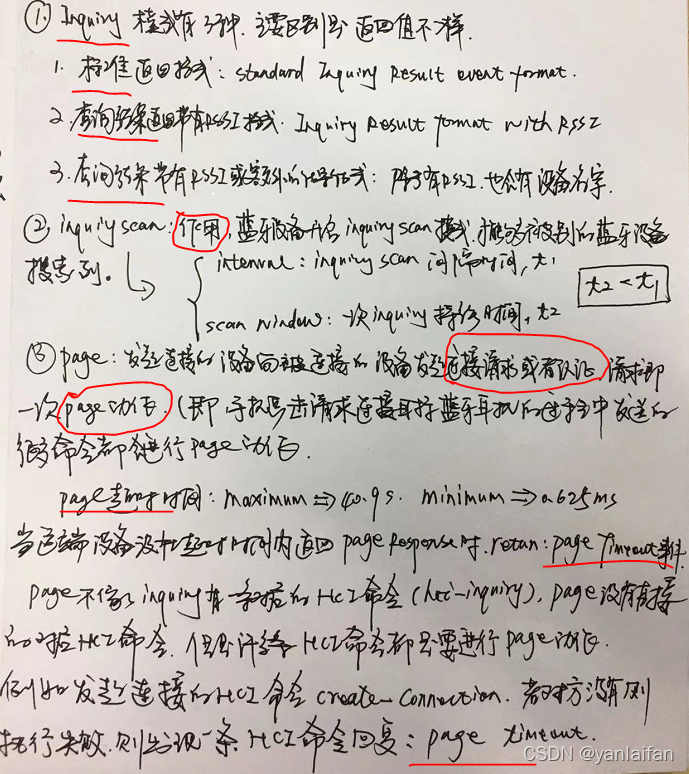 ① Inquiry 模式有3种. 主要区别是 返回值不一样.
1. 标准返回格式: standard Inquiry Result event format.
2. 查询结果返回带有RSSI格式. Inquiry Result format with RSSI
3. 查询结果带有RSSI或额外的 格式: 除了有RSSI. 也会有设备名字.
② inquiry scan: 作用, 蓝牙设备开启 inquiry scan 模式, 才能够被别的蓝牙设备
搜索到。
interval: inquiry scan 间隔时间, t1
t2 < t1
scan window: 一次 inquiry 持续时间, t2
③ page: 发起连接的设备向被连接的设备发起连接请求或者认证 请求即
一次 page 动作. (即 手机 去请求连接耳 蓝牙耳机的过程中发送的
很多命令都会进行 page 动作.
page 超时时间: maximum ⇒ 40.9s. minimum ⇒ 0.625ms
当远端设备没在超时时间内返回 page response 时. return: page Timeout 事件.
page 不像 inquiry 有一条对应的 HCI 命令 (hci-inquiry). page 没有直接
的对应 HCI 命令. 但是许多 HCI 命令都需要进行 page 动作.
例如发起连接的 HCI 命令 create-connection. 若对方没有 则
执行失败. 则出现一条 HCI 命令回复: page timeout.
CSDN @yanlaifan